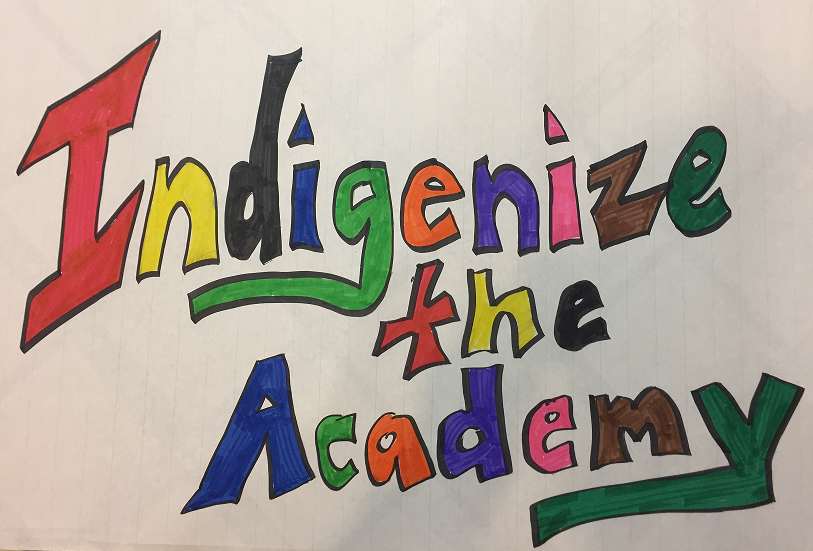 Indigenize
the
Academy